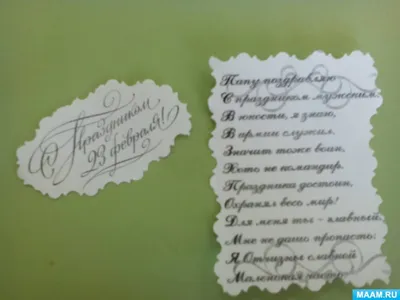 С Праздником
23 февраля!
Папу поздравляю
С праздником мужским:
В юности, я знаю,
В армии служил.
Значит тоже воин,
Хоть не командир.
Праздника достоин,
Охранял весь мир!
Для меня ты - главный,
Мне не дашь пропасть:
Я Отчизны славной
Маленькая часть.
MAAM.RU